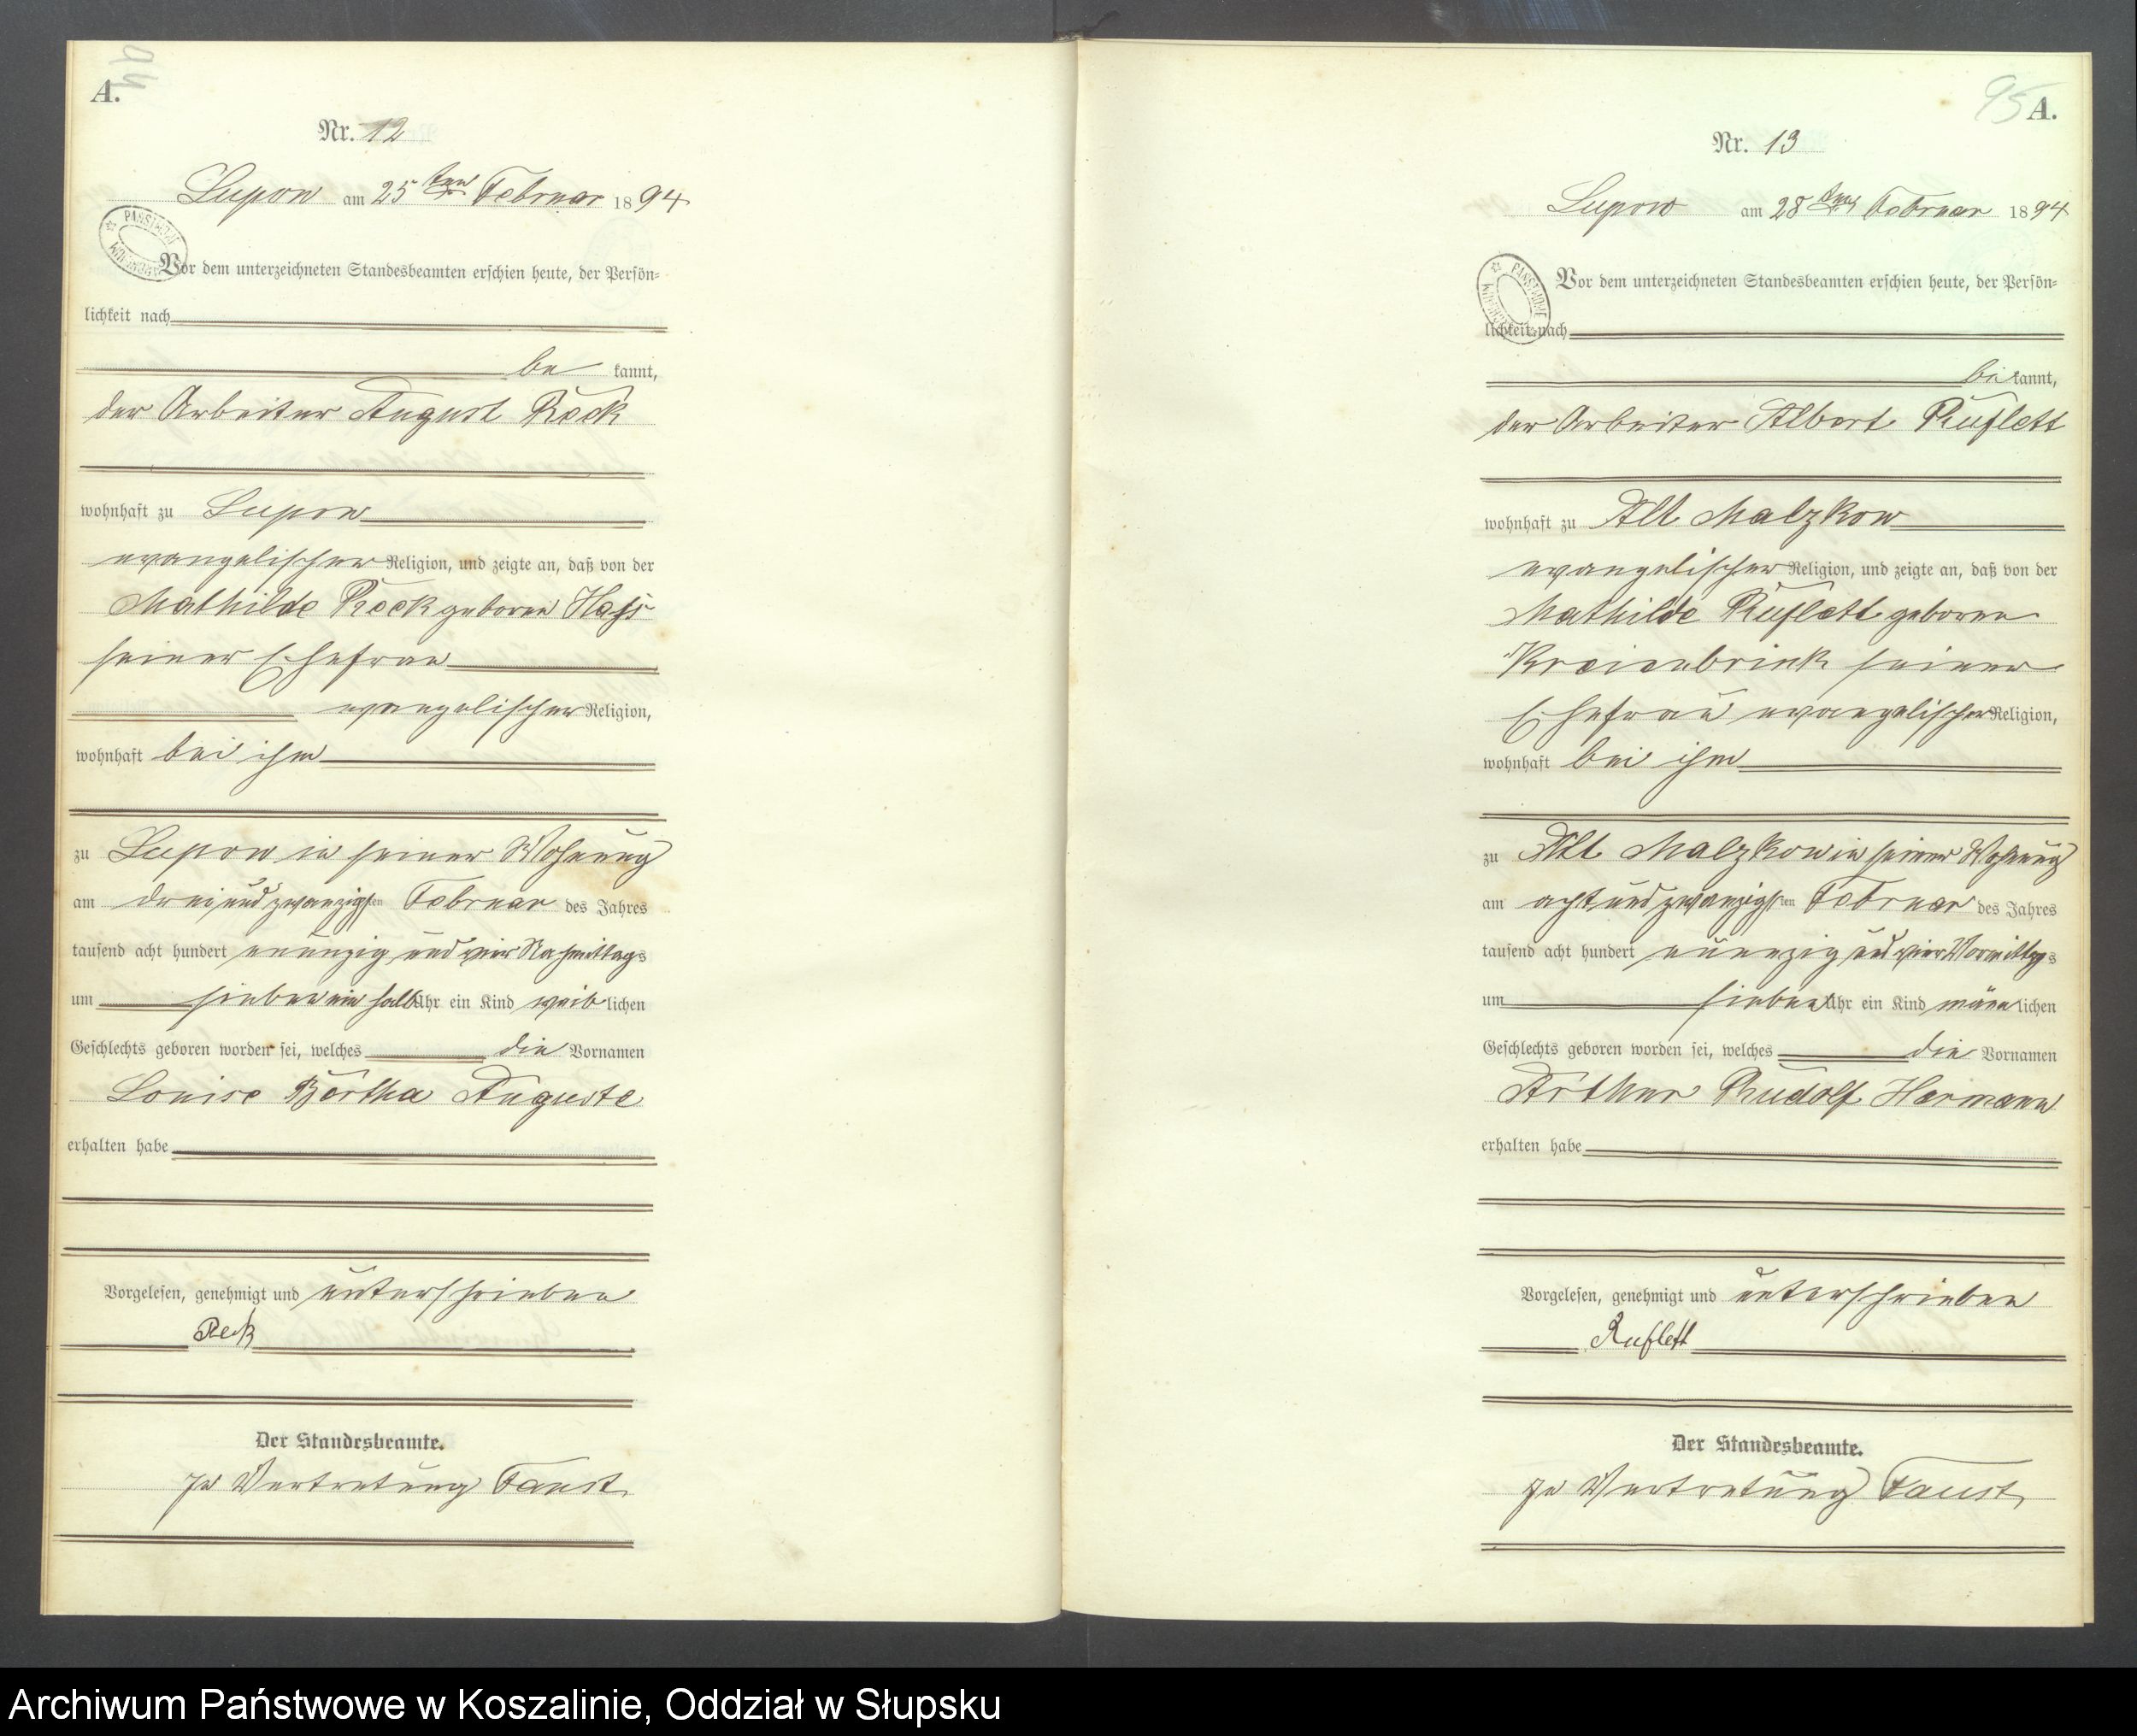 94
A.
Nr. 12
Lupow am 25ten Februar 1894
Vor dem unterzeichneten Standesbeamten erschien heute, der Persön-
lichkeit nach
be kannt,
der Arbeiter August Reck
wohnhaft zu Lupow
evangelischer Religion, und zeigte an, daß von der
Mathilde Reck geborne Hass
seiner Ehefrau
evangelischer Religion,
wohnhaft bei ihm
zu Lupow in seiner Wohnung
am dreiundzwanzigsten Februar des Jahres
tausend acht hundert neunzig und vier Nachmittags
um sieben ein halb Uhr ein Kind weib lichen
Geschlechts geboren worden sei, welches die Vornamen
Louise Bertha Auguste
erhalten habe
Vorgelesen, genehmigt und unterschrieben
Reck
Der Standesbeamte.
In Vertretung Faust
95
A.
Nr. 13
Lupow am 28ten Februar 1894
Vor dem unterzeichneten Standesbeamten erschien heute, der Persön-
lichkeit nach
be kannt,
der Arbeiter Albert Ruflett
wohnhaft zu Alt Malzkow
evangelischer Religion, und zeigte an, daß von der
Mathilde Ruflett geborne
Kreienbrink seiner
Ehefrau evangelischer Religion,
wohnhaft bei ihm
zu Alt Malzkow in seiner Wohnung
am achtundzwanzigsten Februar des Jahres
tausend acht hundert neunzig und vier Vormittags
um sieben Uhr ein Kind männ lichen
Geschlechts geboren worden sei, welches die Vornamen
Arthur Rudolf Hermann
erhalten habe
Vorgelesen, genehmigt und unterschrieben
Ruflett
Der Standesbeamte.
In Vertretung Faust
Archiwum Państwowe w Koszalinie, Oddział w Słupsku